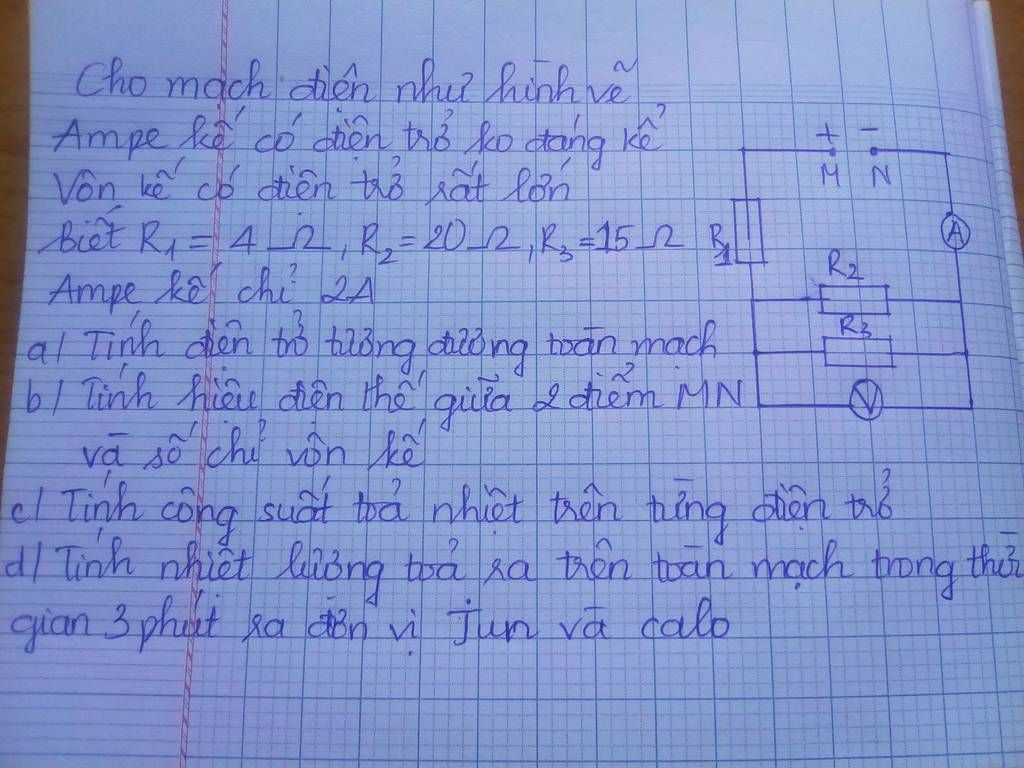 Cho mạch điện như hình vẽ
Ampe kế có điện trở ko đáng kể
Vôn kế có điện trở rất lớn
Biết R1 = 4 Ω, R2 = 20 Ω, R3 = 15 Ω
Ampe kế chỉ 2A
a/ Tính điện trở tương đương toàn mạch
b/ Tính hiệu điện thế giữa 2 điểm MN
và số chỉ vôn kế
c/ Tính công suất toả nhiệt trên từng điện trở
d/ Tính nhiệt lượng toả ra trên toàn mạch trong thời
gian 3 phút ra đơn vị Jun và calo
+ -
M N
R1
A
R2
R3
V